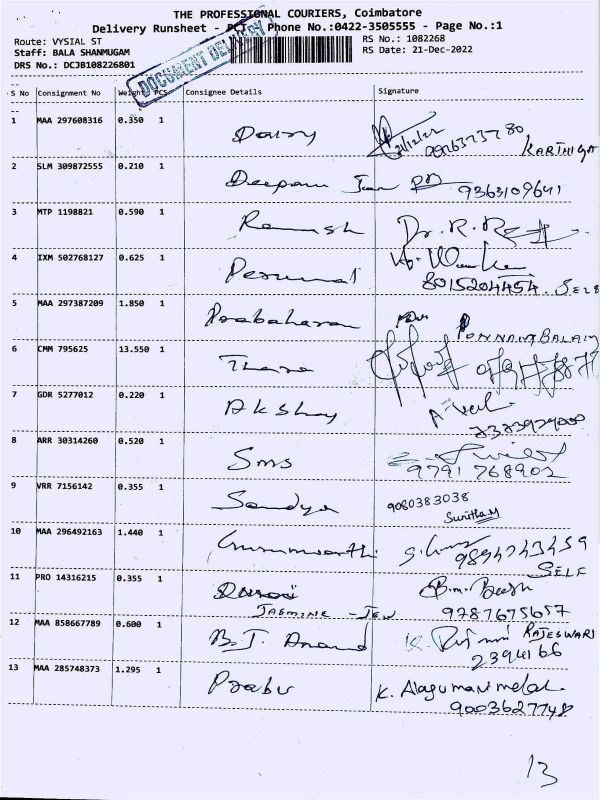 THE PROFESSIONAL COURIERS, Coimbatore
Delivery Runsheet - PCT - Phone No.:0422-3505555 - Page No.:1
Route: VYSIAL ST RS No.: 1082268
Staff: BALA SHANMUGAM RS Date: 21-Dec-2022
DRS No.: DCJB108226801
DOCUMENT DELIVERY
S No Consignment No Weight PCS Consignee Details Signature
1 MAA 297608316 0.350 1 Daisy KARTHIGA
2 SLM 309872555 0.210 1 Deepam 9363109641
3 MTP 1198821 0.590 1 Ramesh Dr. R.
4 IXM 502768127 0.625 1 Perumal
8015204454. SELF
5 MAA 297387209 1.850 1 Prabaharan PONNAMBALAM
6 CMM 795625 13.550 1 Thara
7 GDR 5277012 0.220 1 Akshay
8 ARR 30314260 0.520 1 Sms
9791768902
9 VRR 7156142 0.355 1 Sandya 9080383038
Sunitha M
10 MAA 296492163 1.440 1 9894243459
SELF
11 PRO 14316215 0.355 1
JASMINE - JEW 9787675657
12 MAA 858667789 0.600 1 B.J. Anand K. RAJESWARI
2394166
13 MAA 285748373 1.295 1 Prabu K. Alagumanimelai
9003627748
13